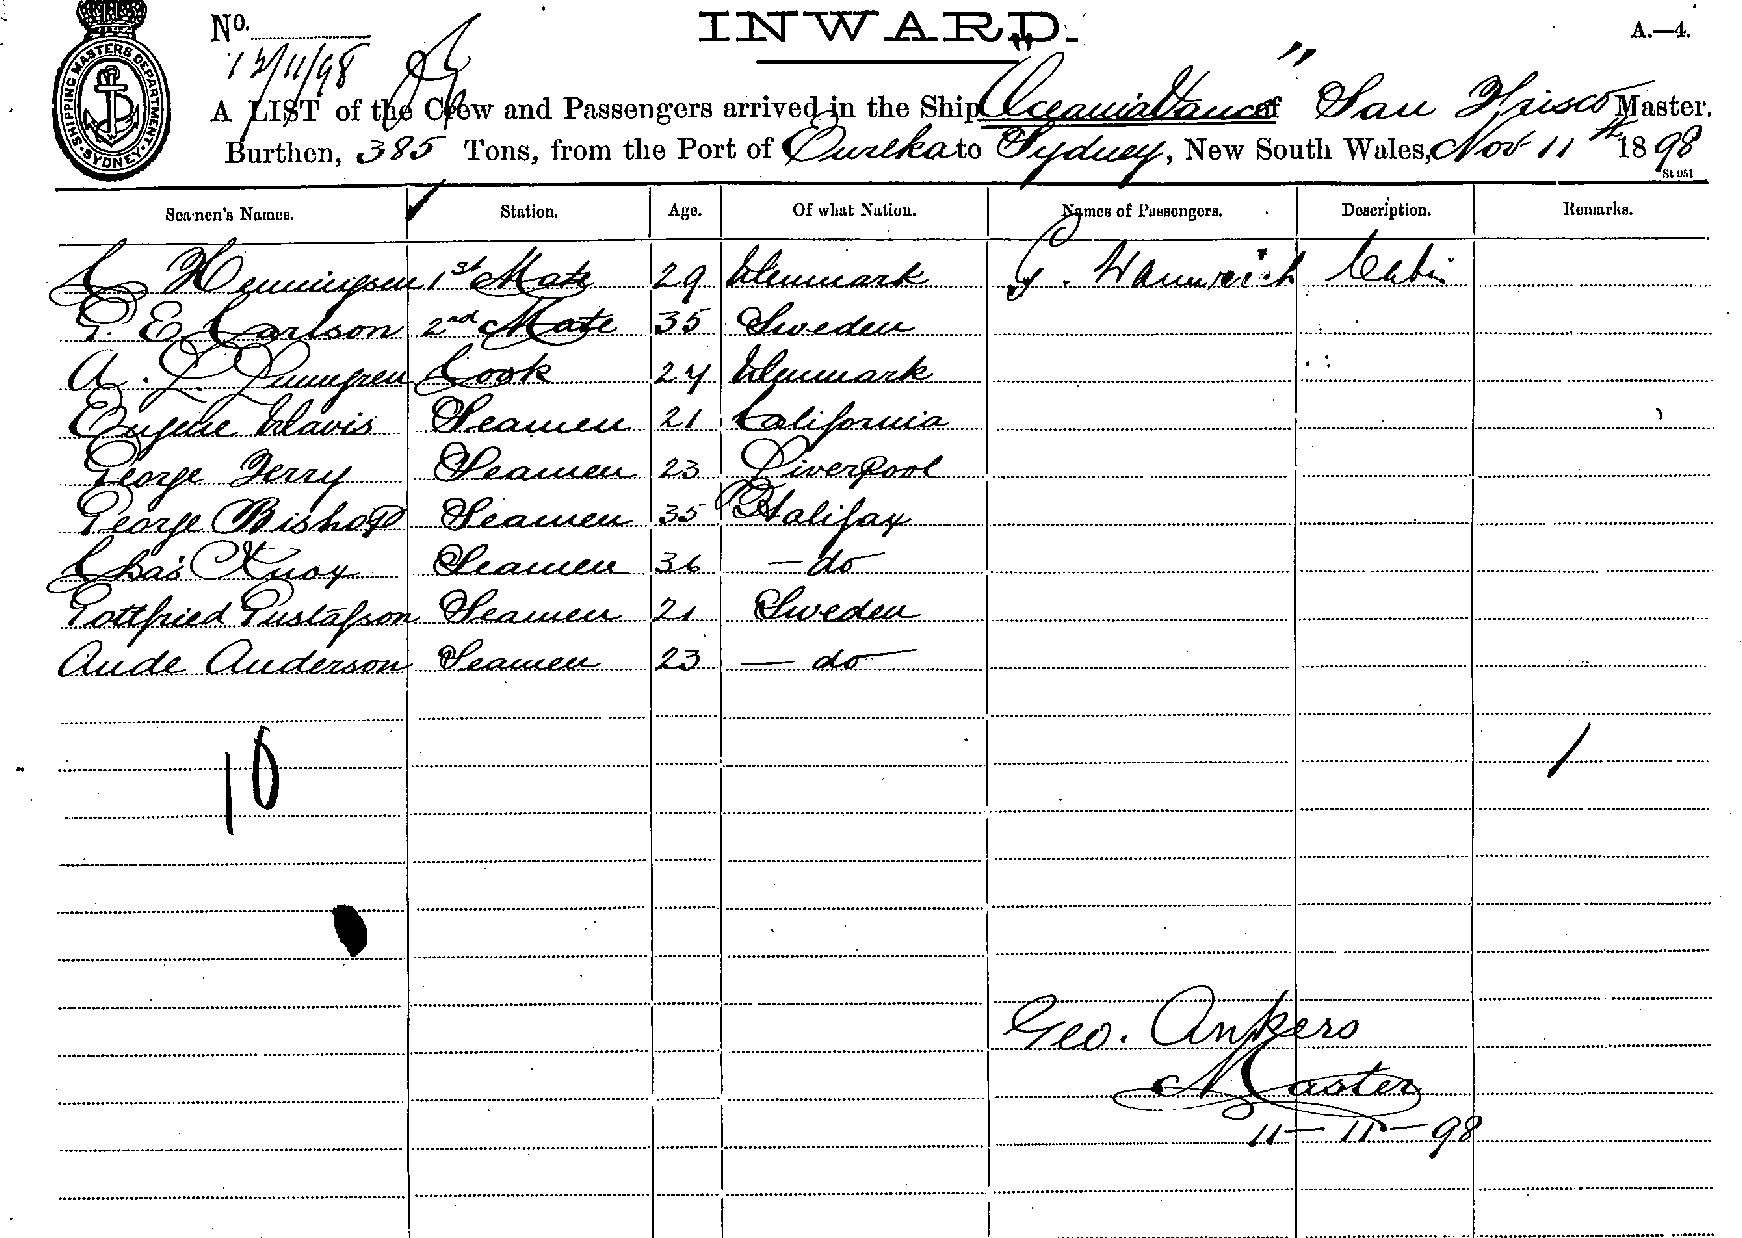 No.
INWARD.
A.—4.
12/11/98
SHIPPING MASTERS DEPARTMENT. SYDNEY
A LIST of the Crew and Passengers arrived in the Ship "Oceania Vance" of San Frisco Master.
Burthen, 385 Tons, from the Port of Eureka to Sydney, New South Wales, Nov 11th 1898
Seamen's Names. Station. Age. Of what Nation. Names of Passengers. Description. Remarks.
C Henningsen 1st Mate 29 Denmark Cabin
G. E Carlson 2nd Mate 35 Sweden
A. L. Cook 24 Denmark
Eugene Davis Seamen 21 California
George Terry Seamen 23 Liverpool
George Bishop Seamen 35 Halifax
Chas Knox Seamen 36 — do
Gottfried Gustafson Seamen 21 Sweden
Aude Anderson Seamen 23 — do
10 1
Geo. Ankers
Master
11—11—98